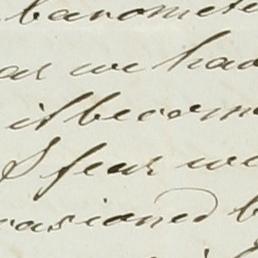 baromete
as we had
it becom
I fear we
casioned b